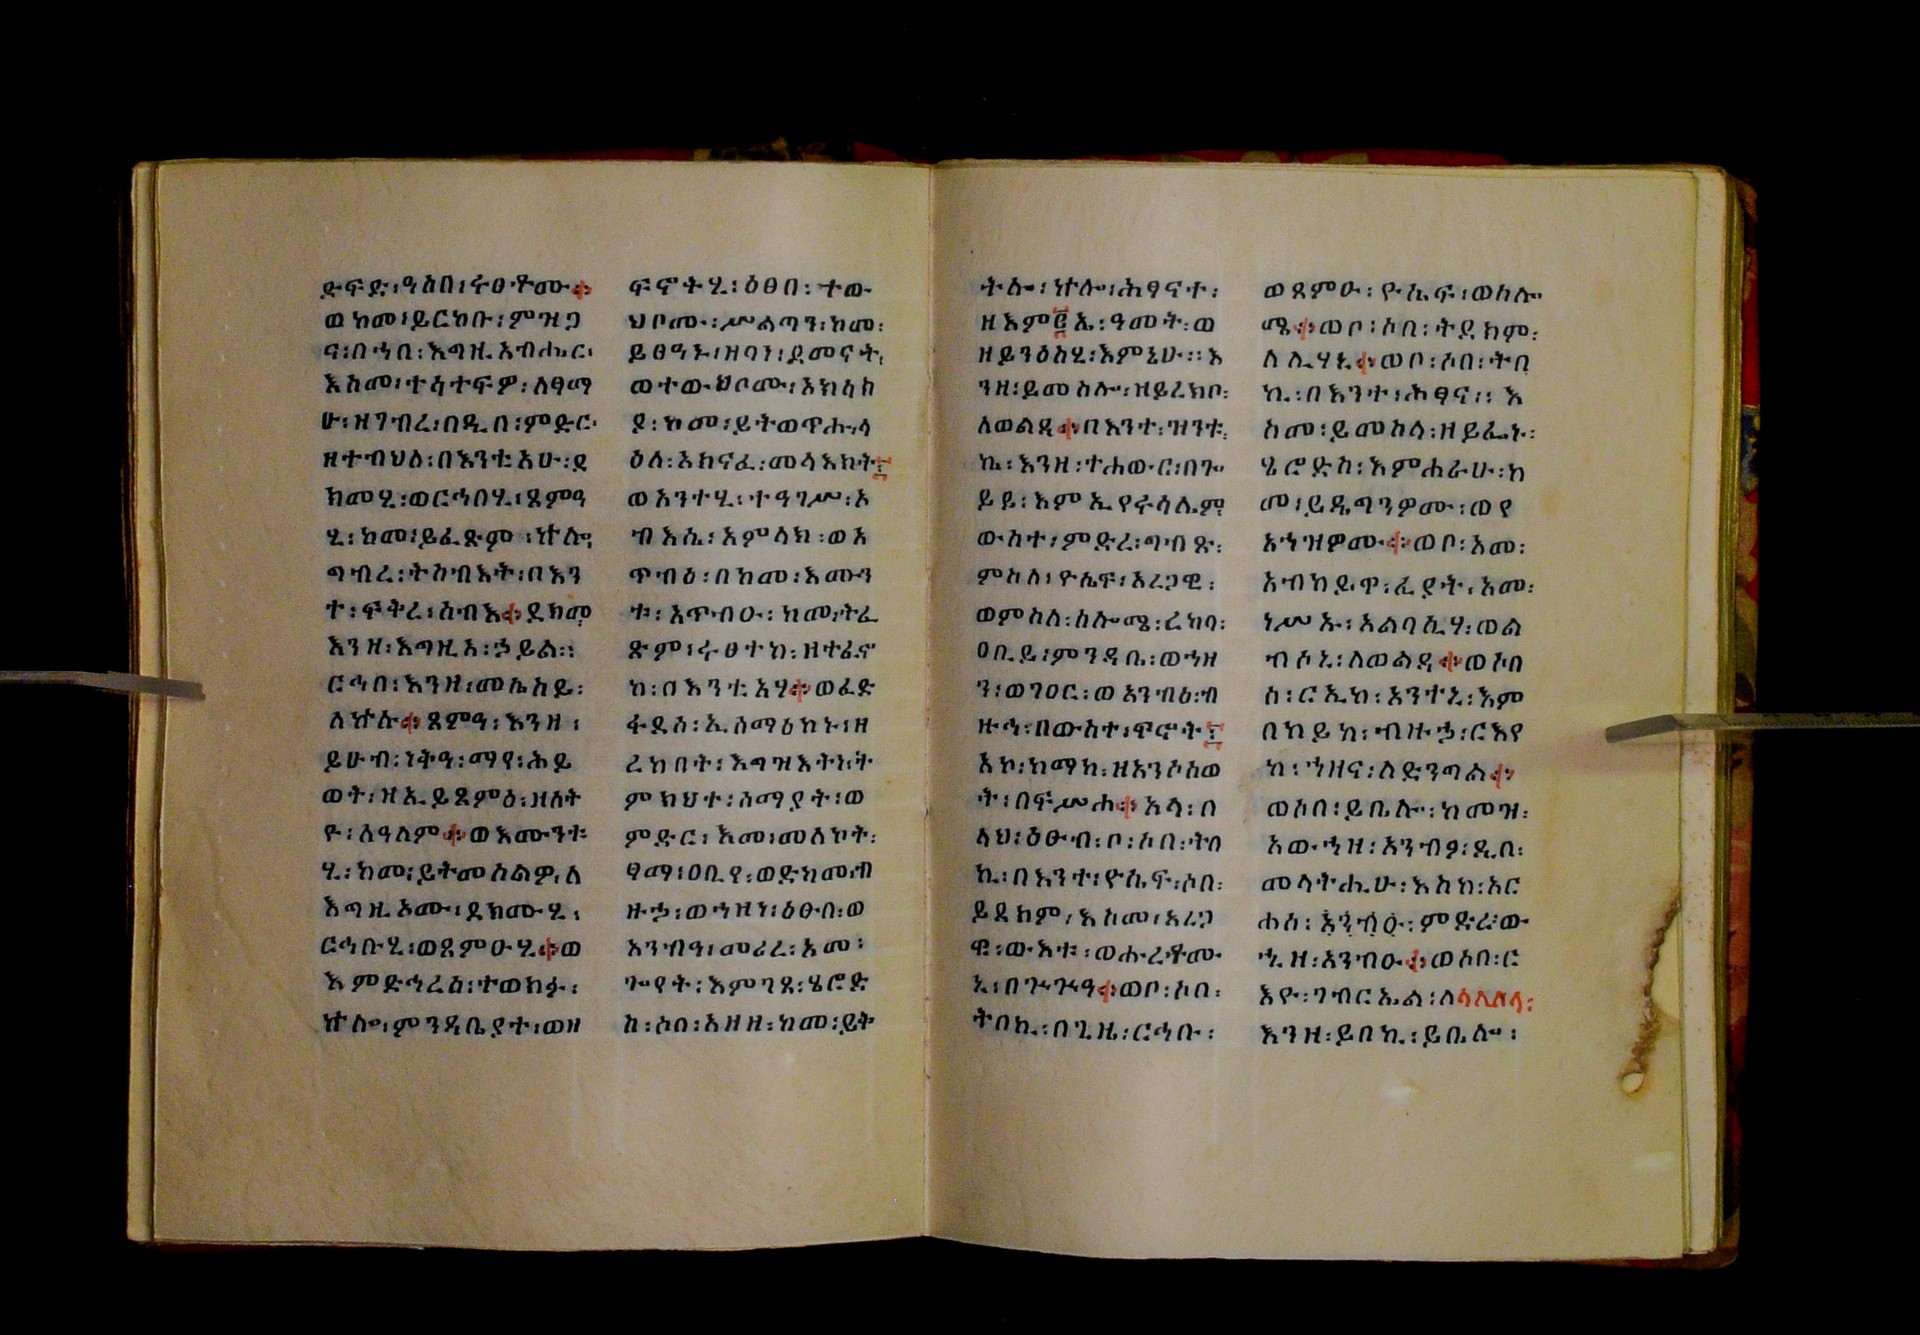 ድፍድ፡ዓስበ፡ሩፀቶሙ።
ወከመ፡ይርከቡ፡ምዝጋ
ና፡በኀበ፡እግዚአብሔር፡
እስመ፡ተሳተፍዎ፡ለፃማ
ሁ፡ዘገብረ፡በዲበ፡ምድር፡
ዘተብህለ፡በእንቲአሁ፡ደ
ክመሂ፡ወርኅበሂ፡ጸምዓ
ሂ፡ከመ፡ይፈጽም፡ኵሎ፡
ግብረ፡ትስብእት፡በእን
ተ፡ፍትረ፡ስብእ።ደክመ፡
እንዘ፡እግዚአ፡ኃይል።
ርኅበ፡እንዘ፡መሴስይ፡
ለኵሉ።ጸምዓ፡እንዘ፡
ይሁብ፡ነቅዓ፡ማየ፡ሕይ
ወት፡ዘኢይጸምዕ፡ዘሰት
ዮ፡ለዓለም።ወእሙንቱ
ሂ፡ከመ፡ይትመስልዎ፡ለ
እግዚኦሙ፡ደክሙሂ፡
ርኅቡሂ፡ወጸምዑሂ።ወ
እምድኅረዝ፡ተወከፉ፡
ኵሎ፡ምንዳቤያተ፡ወዘ
ፍኖትሂ፡ዕፀበ፡ተው
ህቦሙ፡ሥልጣን፡ከመ፡
ይፀዓኑ፡ዘባነ፡ደመናት፡
ወተውህቦሙ፡አክሳከ
ደ፡ከመ፡ይትወጥሑ፡ላ
ዕለ፡አክናፈ፡መላእክት፡
ወአንተሂ፡ተዓገሥ፡አ
ብእሴ፡አምላክ፡ወአ
ጥብዕ፡በከመ፡እሙን
ቱ፡አጥብዑ፡ከመ፡ትፈ
ጽም፡ሩፀተከ፡ዘተፈኖ
ከ፡በእንቲአሃ።ወፈድ
ፋደሰ፡ኢሰማዕከኑ፡ዘ
ረከበት፡እግዝእትነ፡ት
ምክህተ፡ሰማያት፡ወ
ምድር፡እመ፡መለኮት፡
ፃማ፡ዐቢየ፡ወድክመ፡ብ
ዙኃ፡ወኀዘነ፡ዕፁበ፡ወ
አንብዓ፡መሪረ፡አመ፡
ጐየት፡እምገጸ፡ሄሮድ
ስ፡ሶበ፡አዘዘ፡ከመ፡ይት
ትሎ፡ኵሎ፡ሕፃናተ፡
ዘእም፪ኤ፡ዓመት፡ወ
ዘይንዕስሂ፡እምኔሁ።እ
ንዘ፡ይመስሎ፡ዘይረክቦ፡
ለወልዳ።በእንተ፡ዝንቱ፡
ኬ፡እንዘ፡ተሐውር፡በጐ
ይይ፡እምኢየሩሳሌም፡
ውስተ፡ምድረ፡ግብጽ፡
ምስለ፡ዮሴፍ፡አረጋዊ፡
ወምስለ፡ሰሎሜ፡ረከባ፡
ዐቢይ፡ምንዳቤ፡ወኀዘ
ን፡ወገዐር፡ወአንብዕ፡ብ
ዙኅ፡በውስተ፡ፍኖት፡
አኮ፡ከማከ፡ዘአንሶሰወ
ት፡በፍሥሐ።አላ፡በ
ላህ፡ዕፁብ፡ቦ፡ሶበ፡ትበ
ኪ፡በእንተ፡ዮሴፍ፡ሶበ፡
ይደክም፡እስመ፡አረጋ
ዊ፡ውእቱ፡ወሑረቶሙ
ኒ፡በጕጕዓ።ወቦ፡ሶበ፡
ትበኪ፡በጊዜ፡ርኅቡ፡
ወጸምዑ፡ዮሴፍ፡ወሰሎ
ሜ።ወቦ፡ሶበ፡ትደክም፡
ለሊሃኒ።ወቦ፡ሶበ፡ትበ
ኪ፡በእንተ፡ሕፃና።እ
ስመ፡ይመስላ፡ዘይፌኑ፡
ሄሮድስ፡እምሐራሁ፡ከ
መ፡ይዴግንዎሙ፡ወየ
አኀዝዎሙ።ወቦ፡አመ፡
አብከይዋ፡ፈያት፡አመ፡
ነሥኡ፡አልባሲሃ፡ወል
ብሶኒ፡ለወልዳ።ወሶበ
ሰ፡ርኢከ፡አንተኒ፡እም
በከይከ፡ብዙኃ፡ርእየ
ከ፡ኀዘና፡ለድንግል።
ወሶበ፡ይቤሉ፡ከመዝ፡
አውኀዘ፡አንብዓ፡ዲበ፡
መላትሒሁ፡እስከ፡አር
ሐሰ፡አንብዑ፡ምድረ፡ው
ኂዘ፡አንብዑ።ወሶበ፡ር
እዮ፡ገብርኤል፡ለሳሊሳ፡
እንዘ፡ይበኪ፡ይቤሎ፡